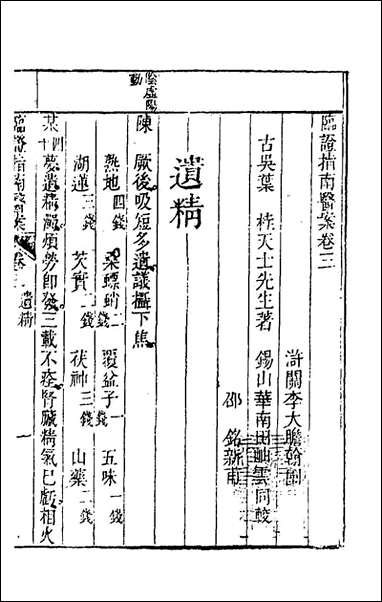 臨證指南醫案卷三
滸關李大瞻翰圃
古吳葉 桂天士先生著 錫山華南田岫雲同較
邵 銘新甫
遺精
陰虛陽動
陳 厥後吸短多遺議攝下焦
熟地四錢 桑螵蛸二錢 覆盆子一錢 五味一錢
湖蓮三錢 芡實二錢 茯神三錢 山藥二錢
某四十 夢遺精濁煩勞即發三載不痊腎臟精氣已虧相火
臨證指南醫案 卷三 遺精 一